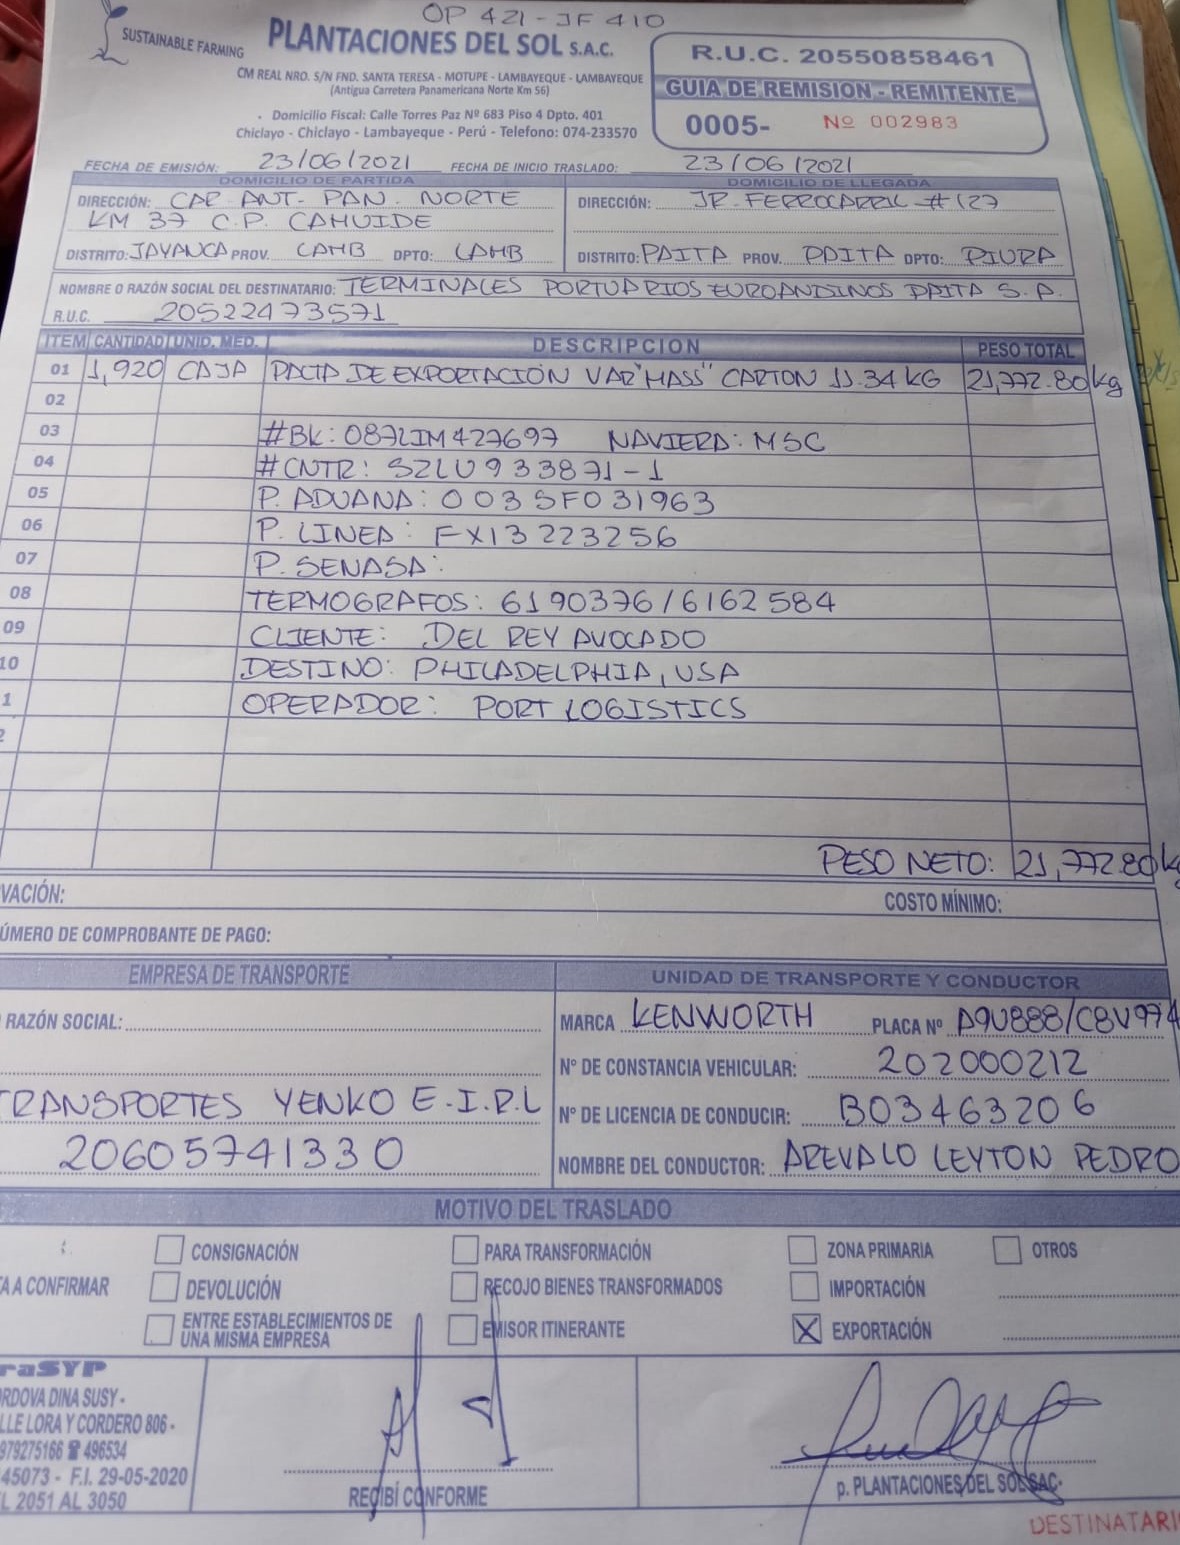 OP 421 - JF 410
SUSTAINABLE FARMING
PLANTACIONES DEL SOL S.A.C.
CM REAL NRO. S/N FND. SANTA TERESA - MOTUPE - LAMBAYEQUE - LAMBAYEQUE
(Antigua Carretera Panamericana Norte Km 56)
Domicilio Fiscal: Calle Torres Paz Nº 683 Piso 4 Dpto. 401
Chiclayo - Chiclayo - Lambayeque - Perú - Telefono: 074-233570
R.U.C. 20550858461
GUIA DE REMISION - REMITENTE
0005- Nº 002983
FECHA DE EMISIÓN: 23/06/2021 FECHA DE INICIO TRASLADO: 23/06/2021
DOMICILIO DE PARTIDA DOMICILIO DE LLEGADA
DIRECCIÓN: CAR. ANT. PAN. NORTE DIRECCIÓN: JR. FERROCARRIL #127
KM 37 C.P. CAHUIDE
DISTRITO: JAYANCA PROV. LAMB DPTO: LAMB DISTRITO: PAITA PROV. PAITA DPTO: PIURA
NOMBRE O RAZÓN SOCIAL DEL DESTINATARIO: TERMINALES PORTUARIOS EUROANDINOS PAITA S.A.
R.U.C. 20522473571
ITEM CANTIDAD UNID. MED. DESCRIPCION PESO TOTAL
01 1,920 CAJA PALTA DE EXPORTACIÓN VAR "HASS" CARTON 11.34 KG 21,772.80 kg
02
03 #BK: 087LIM427697 NAVIERA: MSC
04 #CNTR: SZLU933871-1
05 P. ADUANA: 0035F031963
06 P. LINEA: FX13223256
07 P. SENASA:
08 TERMOGRAFOS: 6190376/6162584
09 CLIENTE: DEL REY AVOCADO
10 DESTINO: PHILADELPHIA, USA
1 OPERADOR: PORT LOGISTICS
2
PESO NETO: 21,772.80 kg
VACIÓN: COSTO MÍNIMO:
ÚMERO DE COMPROBANTE DE PAGO:
EMPRESA DE TRANSPORTE UNIDAD DE TRANSPORTE Y CONDUCTOR
RAZÓN SOCIAL: MARCA KENWORTH PLACA Nº A9U888/C8V974
Nº DE CONSTANCIA VEHICULAR: 202000212
TRANSPORTES YENKO E.I.R.L Nº DE LICENCIA DE CONDUCIR: B03463206
20605741330 NOMBRE DEL CONDUCTOR: AREVALO LEYTON PEDRO
MOTIVO DEL TRASLADO
CONSIGNACIÓN PARA TRANSFORMACIÓN ZONA PRIMARIA OTROS
A A CONFIRMAR DEVOLUCIÓN RECOJO BIENES TRANSFORMADOS IMPORTACIÓN
ENTRE ESTABLECIMIENTOS DE UNA MISMA EMPRESA EMISOR ITINERANTE X EXPORTACIÓN
raSYP
RDOVA DINA SUSY -
LLE LORA Y CORDERO 806 -
979275166 ☎ 496534
45073 - F.I. 29-05-2020
L 2051 AL 3050
RECIBÍ CONFORME p. PLANTACIONES DEL SOL SAC.
DESTINATARI